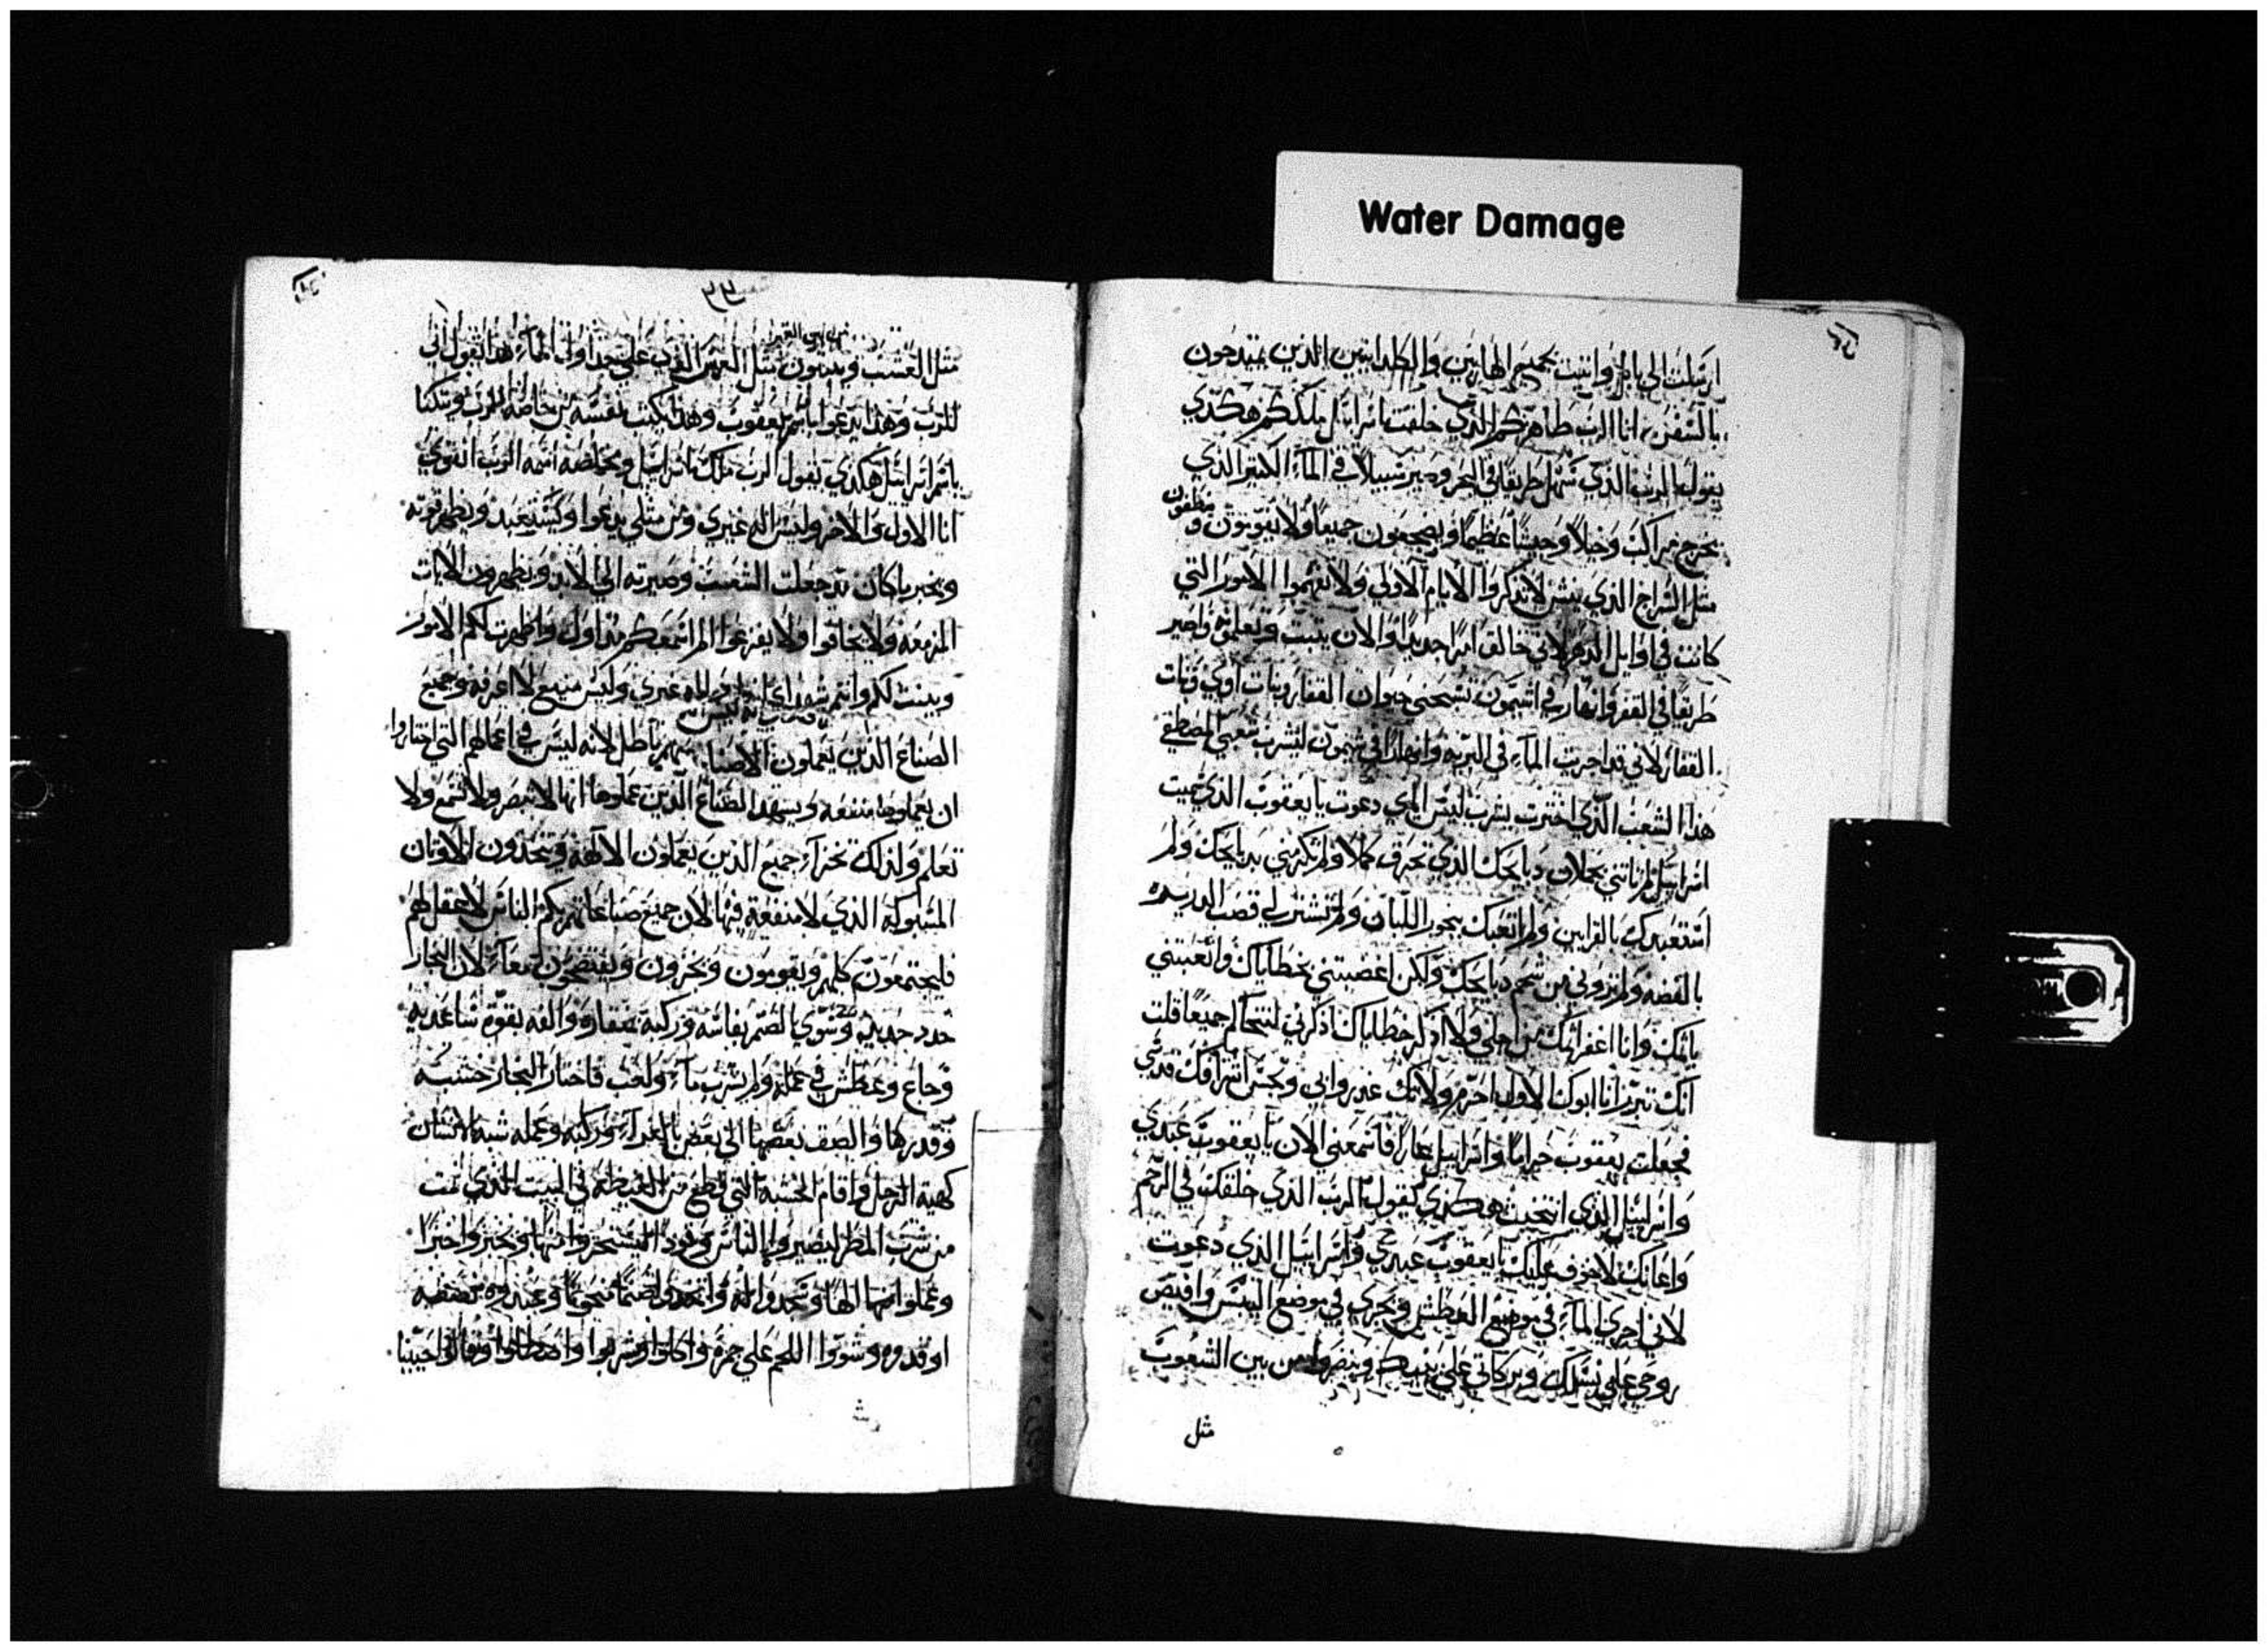 Water Damage
ارسلت الى بابل واتيت بجميع الهاربين والكلدانيين الذين يمتدحون
بالسفن انا الرب طاهركم الذي خلقت اسراييل ملككم هكذي
يقول الرب الذي سهل طريقا في البحر وصير سبيلا في الماء الكثير الذي
يخرج مراكب وخيلا وجيشا عظيما ويضجعون جميعا ولا يقومون و
مثل السراج الذي ينش لا تذكروا الايام الاولى ولا تفهموا الامور التي
كانت في اوايل الدهر لاني خالق امرا جديدا والان ينبت وتعلمونه واصير
طريقا في القفر وانهار في اشيمون تسبحني حيوان القفار وبنات اوي وبنات
القفار لاني قد اجريت الماء في البريه وانهارا في شيمون ليشرب شعبي المصطفي
هذا الشعب الذي اخترت يشرب ليس اياي دعوت يا يعقوب الذي
اسراييل لم تاتني بحملان دبايحك الذي تحرق كملا ولم تكرمني بدبايحك ولم
استعبدك بالقرابين ولم اتعبك ببخور اللبان ولم تشتر لي قصب
بالفضه ولم تروني من شحم دبايحك ولكن اغضبتني بخطاياك واتعبتني
باثمك وانا اغفر اثمك من اجلي ولا اذكر خطاياك اذكرني لنتحاكم جميعا قلت
انك تبرر انا ابوك الاول اجرم ولاتك غدروا بي ونجس اشرافك قدسي
فجعلت يعقوب حراما واسراييل عارا فاسمعني الان يا يعقوب عبدي
واسراييل الذي انتخبت هكذي يقول الرب الذي خلقك في الرحم
واعانك لا خوف عليك يا يعقوب عبدي واسراييل الذي دعوت
لاني اجري الماء في موضع العطش وتجري في موضع اليبس وافيض
روحي على نسلك وبركاتي على بنيك وينضروا من بين الشعوب
مثل
٣٣
مثل العشب وينبتون مثل الغرس الذي على جداول الماء هذا يقول اني
للرب وهذا يدعوا باسم يعقوب وهذا يكتب نفسه من خاصة الرب ويتكنا
باسم اسراييل هكذي يقول الرب ملك اسراييل ومخلصه اسمه الرب القوي
انا الاول والاخر وليس اله غيري ومن مثلي يدعوا ويظهر قوته
ويخبر ما كان قد جعلت الشعب وصيرته الى الابد ويظهرون الايات
المزمعه ولا يخافوا ولا يفزعوا الم اسمعكم من اول واظهرت لكم الامور
وبينت لكم وانتم اله غيري وليس منيع لا اعرفه وجميع
الصناع الذين يعملون الاصنام باطل لانه ليس في اعمالهم التي اختاروا
ان يعملوها منفعه ويشهد الصناع الذين عملوها انها لا تبصر ولا تسمع ولا
تعلم ولذلك تخزاء جميع الذين يعملون الالهه ويتخذون الاوثان
المسبوكه الذي لا منفعة فيها لان جميع صناعاتهم بكم الناس لا عقل لهم
فليجتمعون كلهم ويقومون ويخزون ويفتضحون معا لان النجار
حدد حديده وسوي الصنم بفاسه وركبه بمنقاره والفه بقوة ساعديه
وجاع وعطش في عمله ولم يشرب ماء ولغب فاختار النجار خشبه
وقدرها والصق بعضها الى بعض بالغراء وركبه وعمله شبه الانسان
كهية الرجل واقام الخشبه التي قطع من الغيظه في البيت الذي نمت
من شرب المطر ليصيروا للناس وقود السجر وا منها وخبزوا خبزا
وعملوا منها الها وسجدوا له واتخذوا صنما منحوتا وعبدوه نصفه
اوقدوه وشووا اللحم على جمره واكلوا وشربوا واصطلوا وقالوا